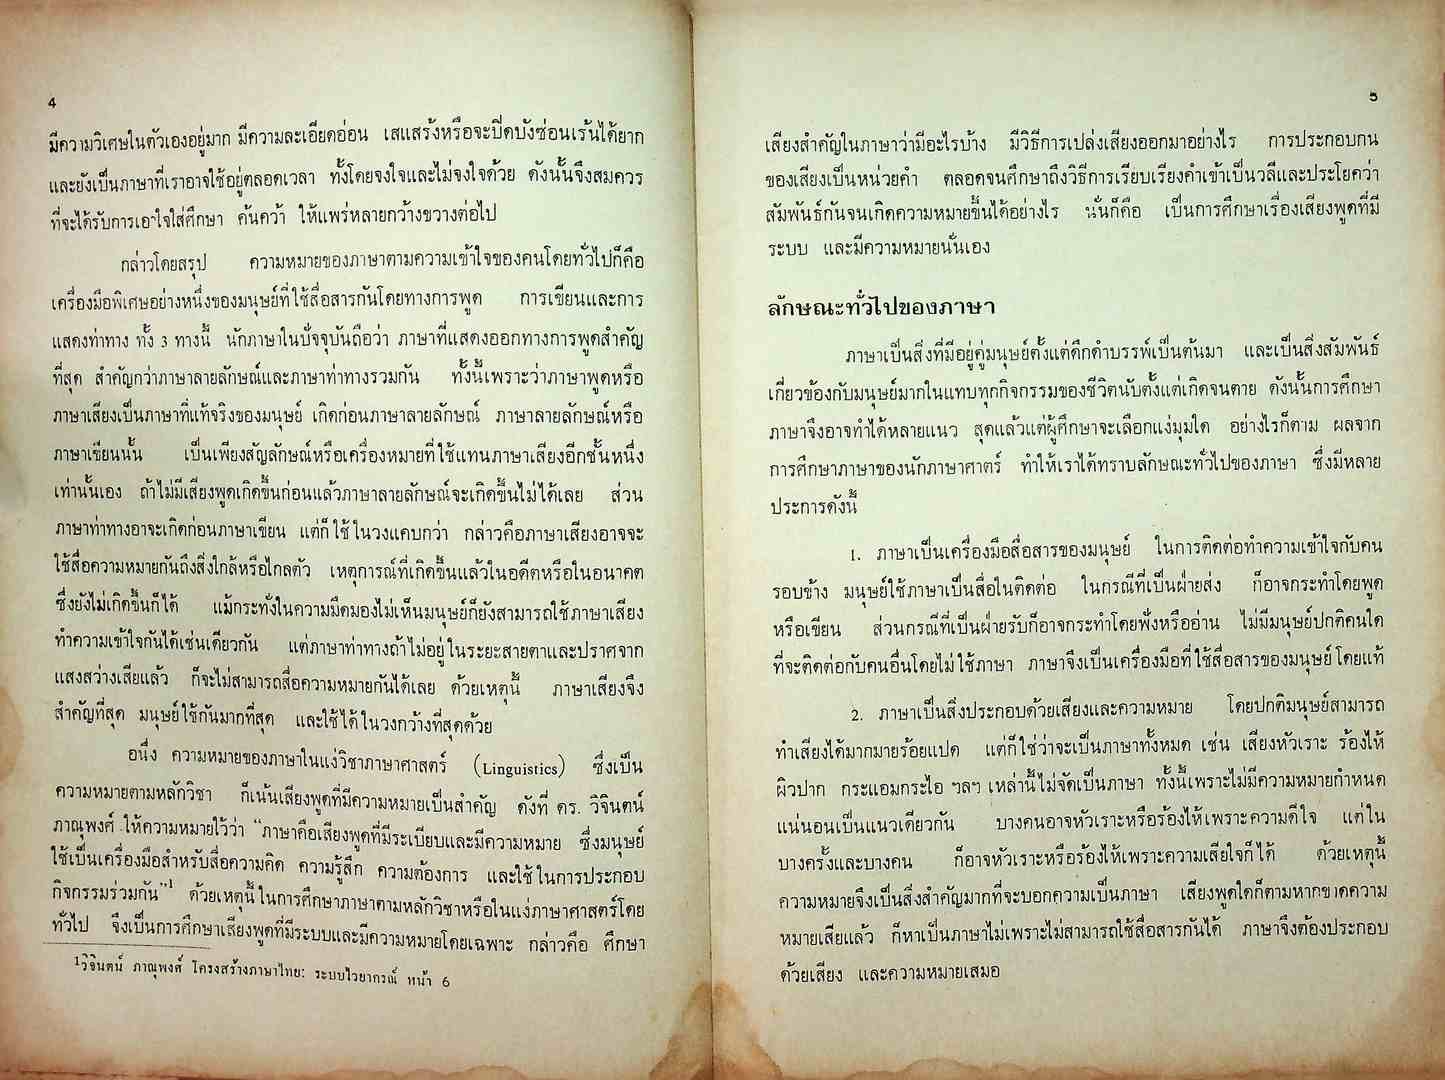 4
มีความวิเศษในตัวเองอยู่มาก มีความละเอียดอ่อน เสแสร้งหรือจะปิดบังซ่อนเร้นได้ยาก
และยังเป็นภาษาที่เราอาจใช้อยู่ตลอดเวลา ทั้งโดยจงใจและไม่จงใจด้วย ดังนั้นจึงสมควร
ที่จะได้รับการเอาใจใส่ศึกษา ค้นคว้า ให้แพร่หลายกว้างขวางต่อไป
กล่าวโดยสรุป ความหมายของภาษาตามความเข้าใจของคนโดยทั่วไปก็คือ
เครื่องมือพิเศษอย่างหนึ่งของมนุษย์ที่ใช้สื่อสารกันโดยทางการพูด การเขียนและการ
แสดงท่าทาง ทั้ง 3 ทางนี้ นักภาษาในปัจจุบันถือว่า ภาษาที่แสดงออกทางการพูดสำคัญ
ที่สุด สำคัญกว่าภาษาลายลักษณ์และภาษาท่าทางรวมกัน ทั้งนี้เพราะว่าภาษาพูดหรือ
ภาษาเสียงเป็นภาษาที่แท้จริงของมนุษย์ เกิดก่อนภาษาลายลักษณ์ ภาษาลายลักษณ์หรือ
ภาษาเขียนนั้น เป็นเพียงสัญลักษณ์หรือเครื่องหมายที่ใช้แทนภาษาเสียงอีกชั้นหนึ่ง
เท่านั้นเอง ถ้าไม่มีเสียงพูดเกิดขึ้นก่อนแล้วภาษาลายลักษณ์จะเกิดขึ้นไม่ได้เลย ส่วน
ภาษาท่าทางอาจะเกิดก่อนภาษาเขียน แต่ก็ใช้ในวงแคบกว่า กล่าวคือภาษาเสียงอาจจะ
ใช้สื่อความหมายกันถึงสิ่งใกล้หรือไกลตัว เหตุการณ์ที่เกิดขึ้นแล้วในอดีตหรือในอนาคต
ซึ่งยังไม่เกิดขึ้นก็ได้ แม้กระทั่งในความมืดมองไม่เห็นมนุษย์ก็ยังสามารถใช้ภาษาเสียง
ทำความเข้าใจกันได้เช่นเดียวกัน แต่ภาษาท่าทางถ้าไม่อยู่ในระยะสายตาและปราศจาก
แสงสว่างเสียแล้ว ก็จะไม่สามารถสื่อความหมายกันได้เลย ด้วยเหตุนี้ ภาษาเสียงจึง
สำคัญที่สุด มนุษย์ใช้กันมากที่สุด และใช้ได้ในวงกว้างที่สุดด้วย
อนึ่ง ความหมายของภาษาในแง่วิชาภาษาศาสตร์ (Linguistics) ซึ่งเป็น
ความหมายตามหลักวิชา ก็เน้นเสียงพูดที่มีความหมายเป็นสำคัญ ดังที่ ดร. วิจินตน์
ภาณุพงศ์ ให้ความหมายไว้ว่า “ภาษาคือเสียงพูดที่มีระเบียบและมีความหมาย ซึ่งมนุษย์
ใช้เป็นเครื่องมือสำหรับสื่อความคิด ความรู้สึก ความต้องการ และใช้ในการประกอบ
กิจกรรมร่วมกัน”¹ ด้วยเหตุนี้ในการศึกษาภาษาตามหลักวิชาหรือในแง่ภาษาศาสตร์โดย
ทั่วไป จึงเป็นการศึกษาเสียงพูดที่มีระบบและมีความหมายโดยเฉพาะ กล่าวคือ ศึกษา
¹วิจินตน์ ภาณุพงศ์ โครงสร้างภาษาไทย: ระบบไวยากรณ์ หน้า 6
5
เสียงสำคัญในภาษาว่ามีอะไรบ้าง มีวิธีการเปล่งเสียงออกมาอย่างไร การประกอบกน
ของเสียงเป็นหน่วยคำ ตลอดจนศึกษาถึงวิธีการเรียบเรียงคำเข้าเป็นวลีและประโยคว่า
สัมพันธ์กันจนเกิดความหมายขึ้นได้อย่างไร นั่นก็คือ เป็นการศึกษาเรื่องเสียงพูดที่มี
ระบบ และมีความหมายนั่นเอง
ลักษณะทั่วไปของภาษา
ภาษาเป็นสิ่งที่มีอยู่คู่มนุษย์ตั้งแต่ดึกดำบรรพ์เป็นต้นมา และเป็นสิ่งสัมพันธ์
เกี่ยวข้องกับมนุษย์มากในแทบทุกกิจกรรมของชีวิตนับตั้งแต่เกิดจนตาย ดังนั้นการศึกษา
ภาษาจึงอาจทำได้หลายแนว สุดแล้วแต่ผู้ศึกษาจะเลือกแง่มุมใด อย่างไรก็ตาม ผลจาก
การศึกษาภาษาของนักภาษาศาตร์ ทำให้เราได้ทราบลักษณะทั่วไปของภาษา ซึ่งมีหลาย
ประการดังนี้
1. ภาษาเป็นเครื่องมือสื่อสารของมนุษย์ ในการติดต่อทำความเข้าใจกับคน
รอบข้าง มนุษย์ใช้ภาษาเป็นสื่อในติดต่อ ในกรณีที่เป็นฝ่ายส่ง ก็อาจกระทำโดยพูด
หรือเขียน ส่วนกรณีที่เป็นฝ่ายรับก็อาจกระทำโดยฟังหรืออ่าน ไม่มีมนุษย์ปกติคนใด
ที่จะติดต่อกับคนอื่นโดยไม่ใช้ภาษา ภาษาจึงเป็นเครื่องมือที่ใช้สื่อสารของมนุษย์โดยแท้
2. ภาษาเป็นสิ่งประกอบด้วยเสียงและความหมาย โดยปกติมนุษย์สามารถ
ทำเสียงได้มากมายร้อยแปด แต่ก็ใช่ว่าจะเป็นภาษาทั้งหมด เช่น เสียงหัวเราะ ร้องไห้
ผิวปาก กระแอมกระไอ ฯลฯ เหล่านี้ไม่จัดเป็นภาษา ทั้งนี้เพราะไม่มีความหมายกำหนด
แน่นอนเป็นแนวเดียวกัน บางคนอาจหัวเราะหรือร้องไห้เพราะความดีใจ แต่ใน
บางครั้งและบางคน ก็อาจหัวเราะหรือร้องไห้เพราะความเสียใจก็ได้ ด้วยเหตุนี้
ความหมายจึงเป็นสิ่งสำคัญมากที่จะบอกความเป็นภาษา เสียงพูดใดก็ตามหากขาดความ
หมายเสียแล้ว ก็หาเป็นภาษาไม่เพราะไม่สามารถใช้สื่อสารกันได้ ภาษาจึงต้องประกอบ
ด้วยเสียง และความหมายเสมอ